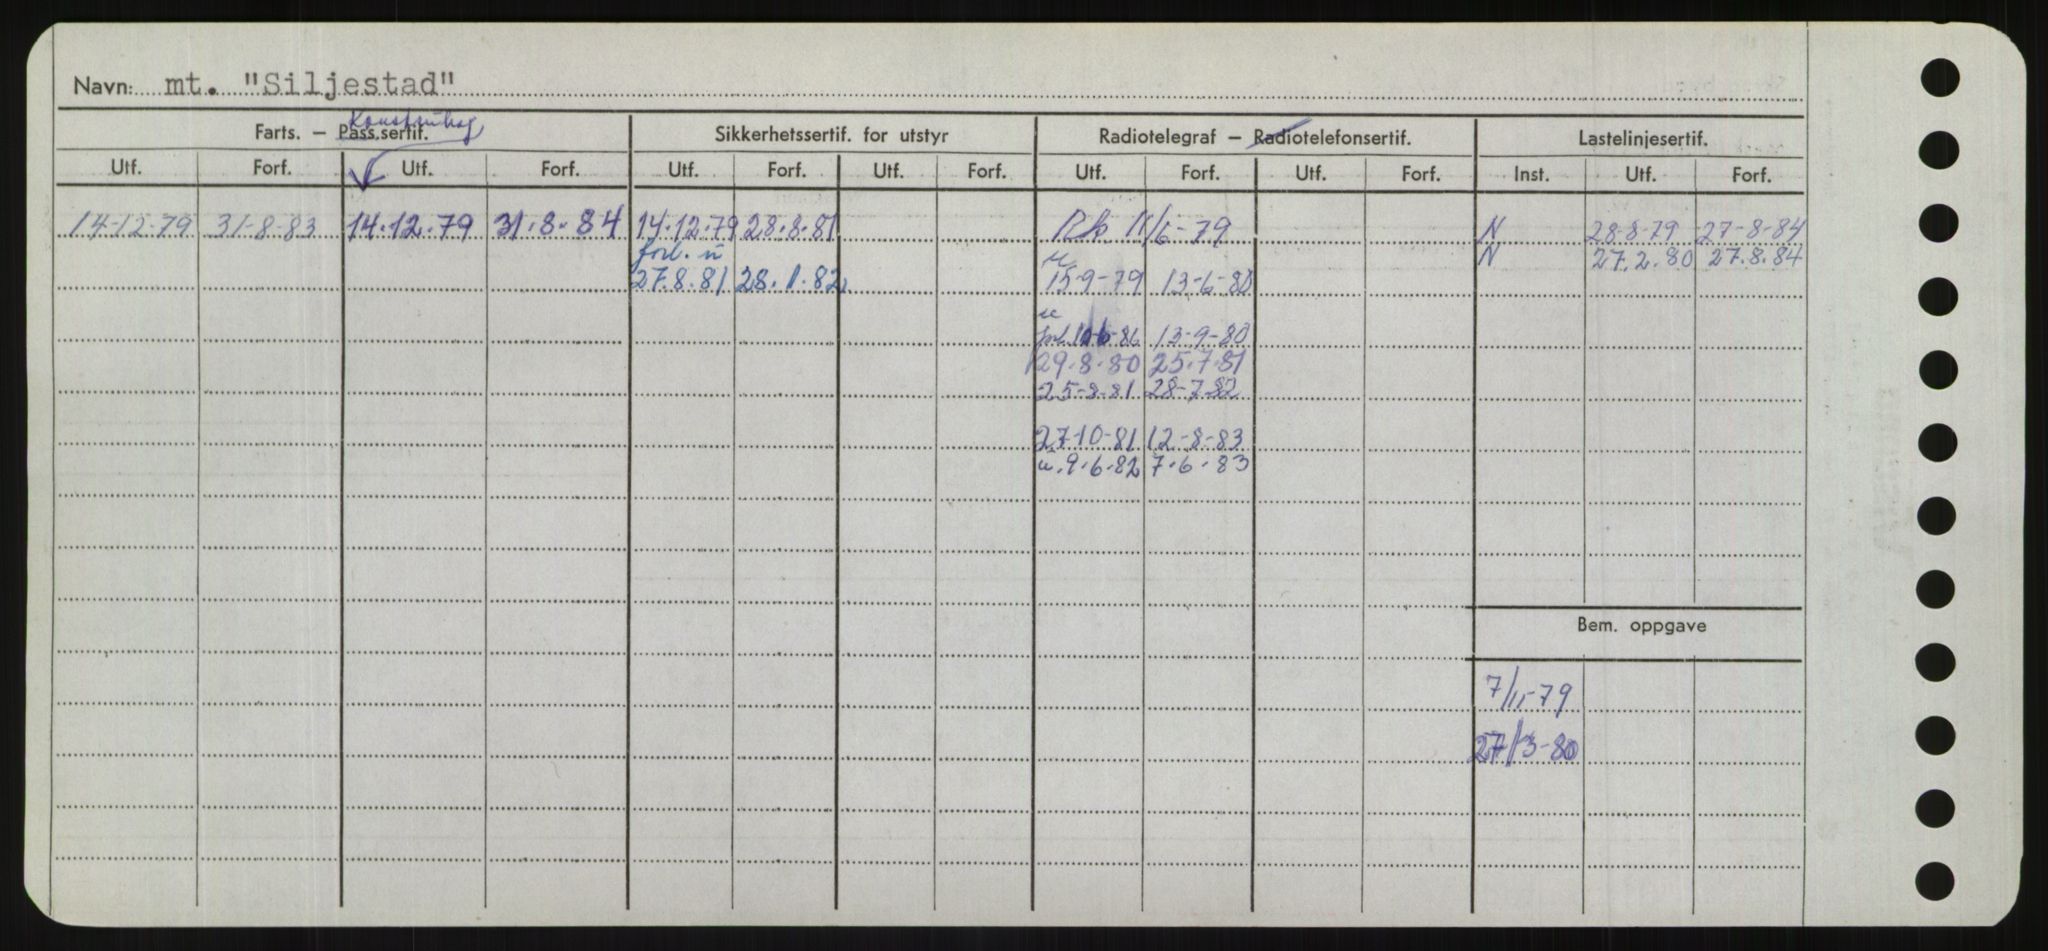 Navn: mt. "Siljestad"
Farts. – Pass.sertif. Sikkerhetssertif. for utstyr Radiotelegraf – Radiotelefonsertif. Lastelinjesertif.
Utf. Forf. Utf. Forf. Utf. Forf. Utf. Forf. Utf. Forf. Utf. Forf. Inst. Utf. Forf.
14-12-79 31-8-83 14.12.79 31.8.84 14.12.79 28.8.81 11/6-79 N 28-8-79 27-8-84
forl. u N 27.2.80 27.8.84
27.8.81 28.1.82 15-9-79 13-6-80
13-9-80
29.8.80 25.7.81
25-8-81 28-7-82
27-10-81 12-8-83
u. 9.6.82 7.6.83
Bem. oppgave
7/11-79
27/3-80